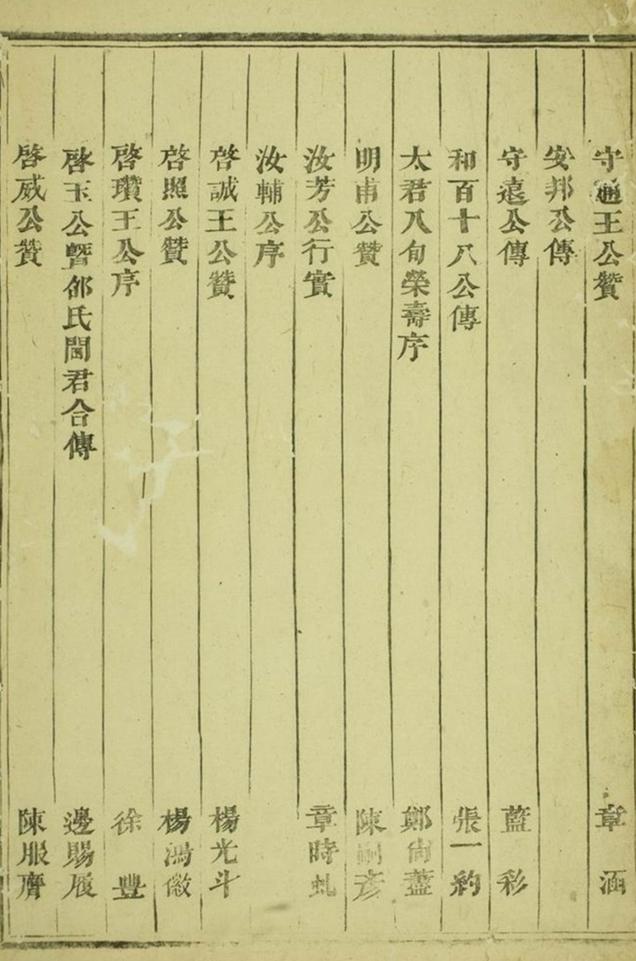 守通王公贊 章涵
安邦公傳
守遠公傳 藍彩
和百十八公傳 張一豹
太君八旬榮壽序 鄭尙藎
明甫公贊 陳嗣彥
汝芳公行實 章時虬
汝輔公序
啓誠王公贊 楊光斗
啓照公贊 楊鴻徽
啓瓚王公序 徐豐
啓玉公曁邵氏閫君合傳 邊賜
啓威公贊 陳服膺